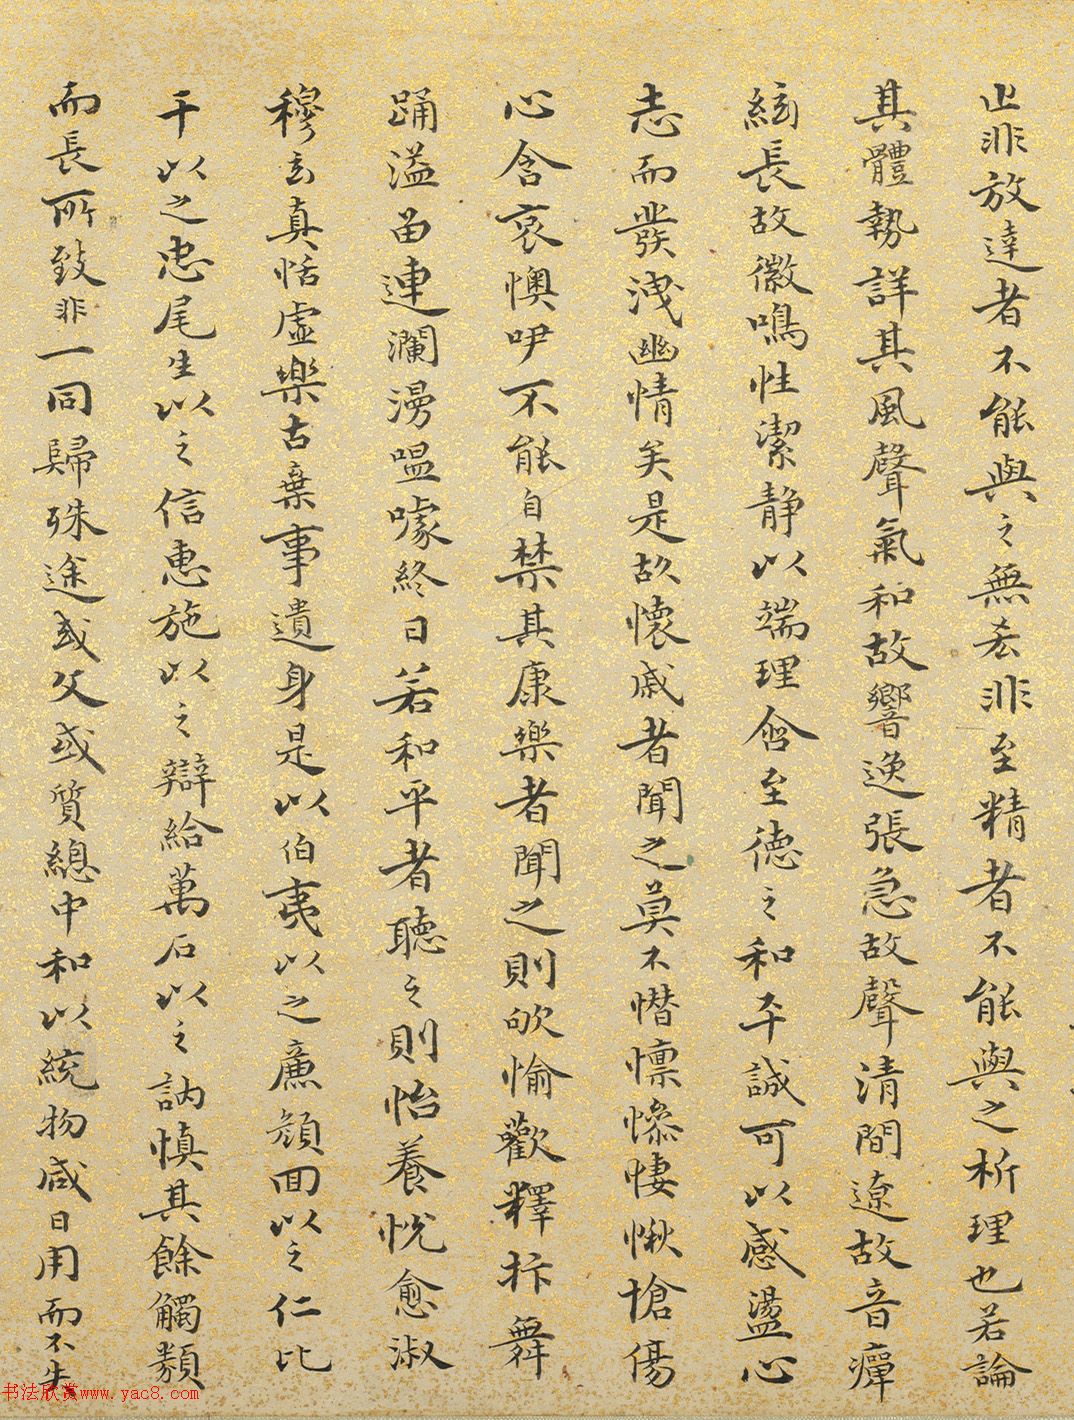 止非放達者不能與之無吝非至精者不能與之析理也若論
其體勢詳其風聲氣和故響逸張急故聲清間遼故音痺
絃長故徽鳴性潔静以端理含至德之和平誠可以感盪心
志而發洩幽情矣是故懷戚者聞之莫不憯懍慘悽愀愴傷
心含哀懊咿不能自禁其康樂者聞之則欨愉歡釋抃舞
踊溢留連瀾漫嗢噱終日若和平者聽之則怡養悅愈淑
穆玄真恬虛樂古棄事遺身是以伯夷以之廉顏回以之仁比
干以之忠尾生以之信惠施以之辯給萬石以之訥慎其餘觸類
而長所致非一同歸殊途或文或質總中和以統物咸日用而不失
书法欣赏www.yac8.com